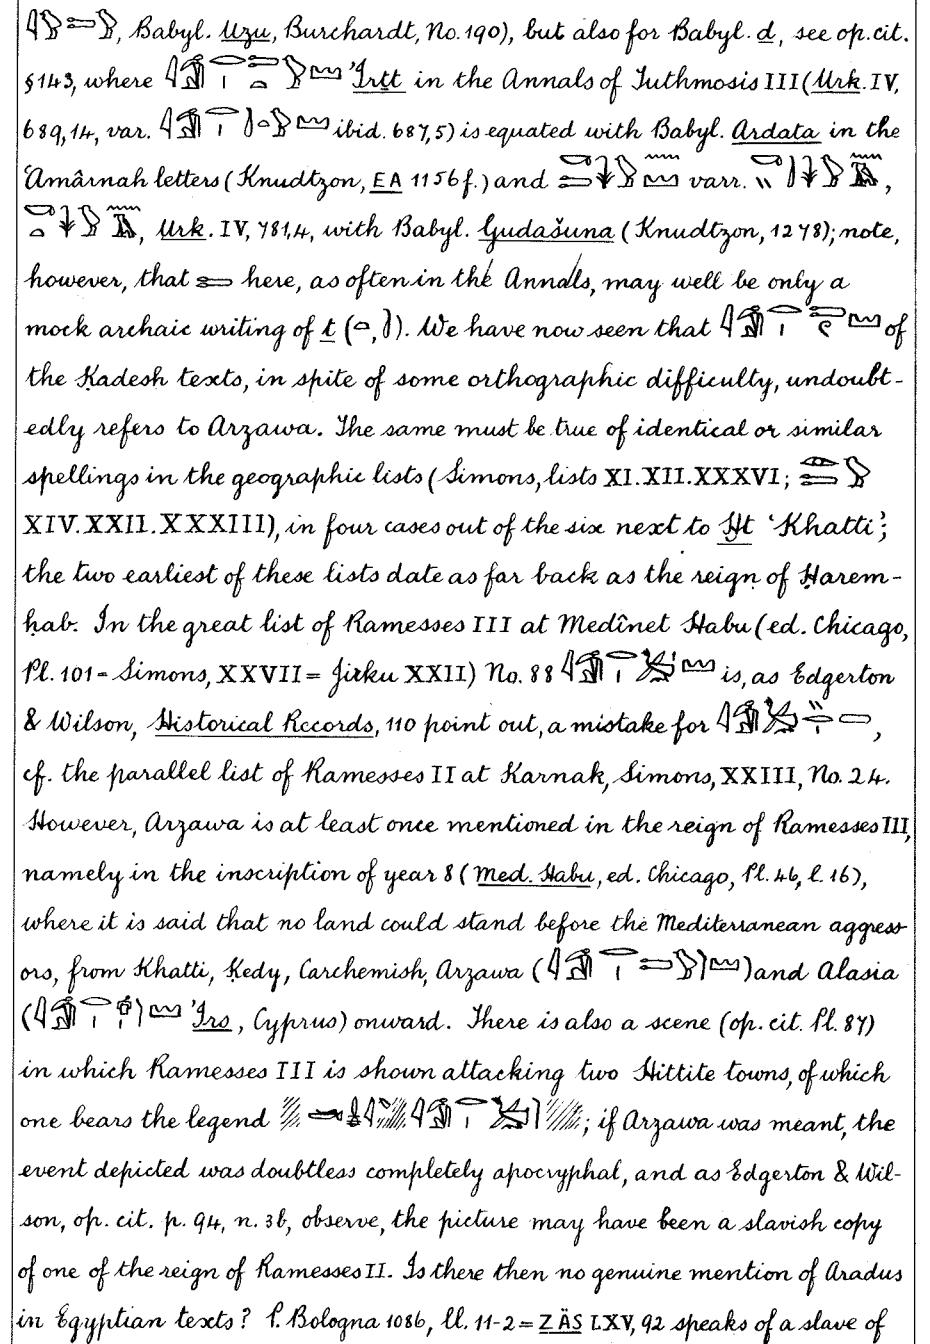 , Babyl. Uzu, Burchardt, No. 190), but also for Babyl. d, see op. cit.
§143, where 'Irtt in the Annals of Tuthmosis III (Urk. IV,
689,14, var. ibid. 687,5) is equated with Babyl. Ardata in the
'Amârnah letters (Knudtzon, EA 1156 f.) and varr. ,
, Urk. IV, 781,4, with Babyl. Gudašuna (Knudtzon, 1278); note,
however, that here, as often in the Annals, may well be only a
mock archaic writing of t ( , ). We have now seen that of
the Ḳadesh texts, in spite of some orthographic difficulty, undoubt-
edly refers to Arzawa. The same must be true of identical or similar
spellings in the geographic lists (Simons, lists XI. XII. XXXVI;
XIV. XXII. XXXIII), in four cases out of the six next to Ḫt 'Khatti';
the two earliest of these lists date as far back as the reign of Ḥarem-
ḥab. In the great list of Ramesses III at Medînet Habu (ed. Chicago,
Pl. 101 = Simons, XXVII = Jirku XXII) No. 88 is, as Edgerton
& Wilson, Historical Records, 110 point out, a mistake for ,
cf. the parallel list of Ramesses II at Karnak, Simons, XXIII, No. 24.
However, Arzawa is at least once mentioned in the reign of Ramesses III,
namely in the inscription of year 8 (Med. Habu, ed. Chicago, Pl. 46, l. 16),
where it is said that no land could stand before the Mediterranean aggress-
ors, from Khatti, Ḳedy, Carchemish, Arzawa ( ) and Alasia
( 'Irs, Cyprus) onward. There is also a scene (op. cit. Pl. 87)
in which Ramesses III is shown attacking two Hittite towns, of which
one bears the legend ; if Arzawa was meant, the
event depicted was doubtless completely apocryphal, and as Edgerton & Wil-
son, op. cit. p. 94, n. 3b, observe, the picture may have been a slavish copy
of one of the reign of Ramesses II. Is there then no genuine mention of Aradus
in Egyptian texts? P. Bologna 1086, ll. 11-2 = ZÄS LXV, 92 speaks of a slave of